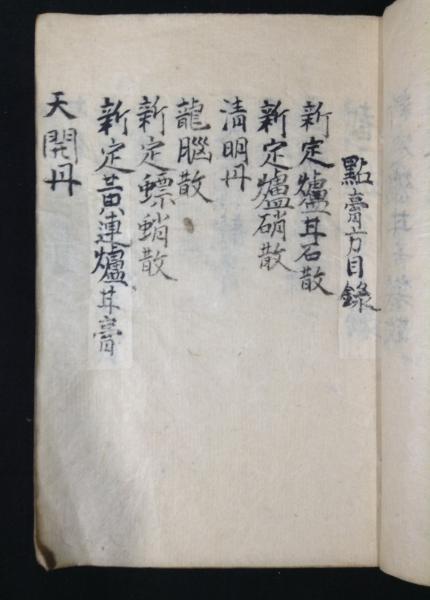 點膏方目錄
新定爐甘石散
新定爐硝散
清明丹
龍腦散
新定螵蛸散
新定黃連爐甘膏
天開丹